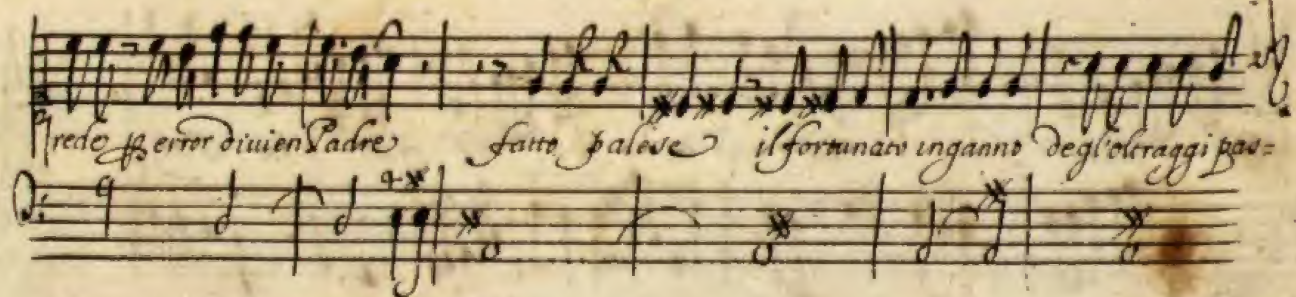 rede p error diuien Padre fatto palese il fortunato inganno degl'oltraggi pas=